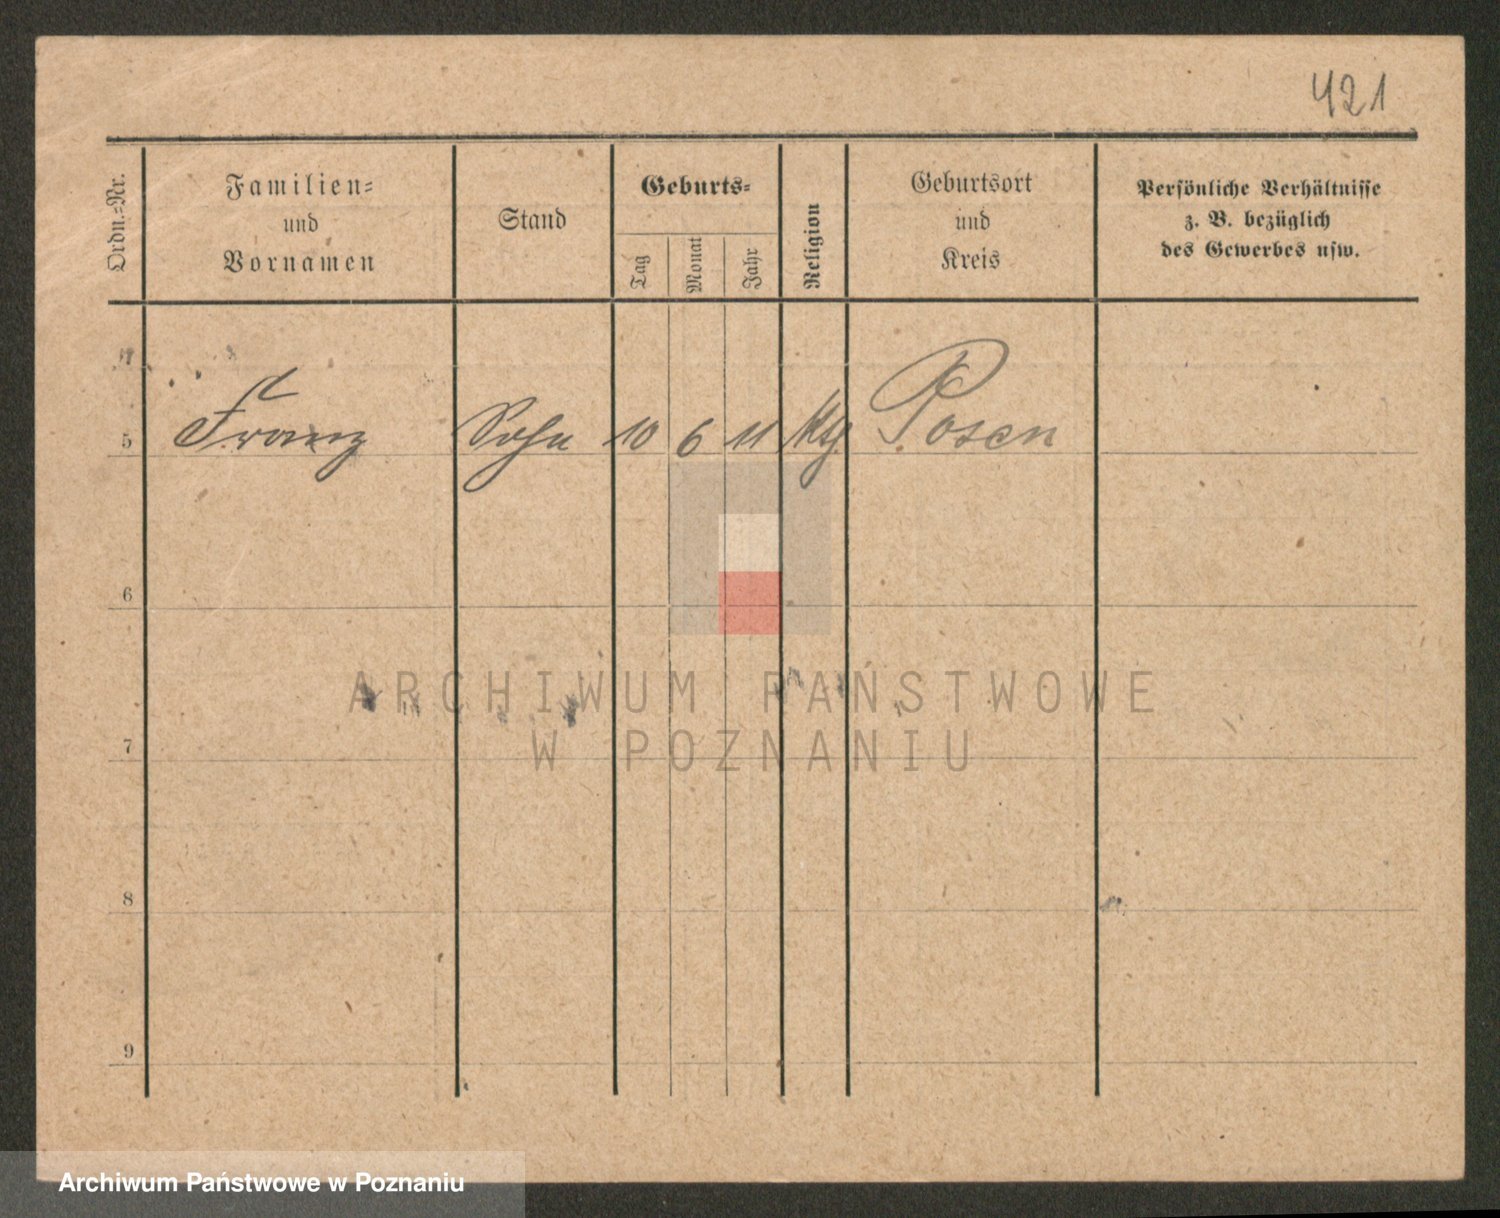 421
Ordn.=Nr.
Familien=
und
Vornamen
Stand
Geburts=
Tag
Monat
Jahr
Religion
Geburtsort
und
Kreis
Persönliche Verhältnisse
z. B. bezüglich
des Gewerbes usw.
5 Franz Sohn 10 6 11 Posen
6
ARCHIWUM PAŃSTWOWE
W POZNANIU
7
8
9
Archiwum Państwowe w Poznaniu